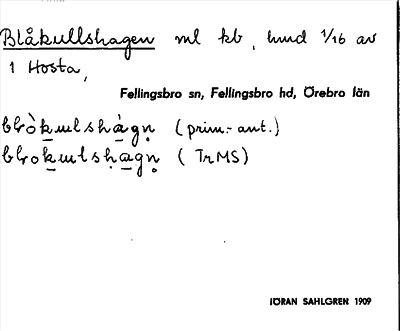 Blåkullshagen ml kb, hmd 1/16 av
1 Hosta,
Fellingsbro sn, Fellingsbro hd, Örebro län
(prim.-ant.)
(TrMS)
JÖRAN SAHLGREN 1909